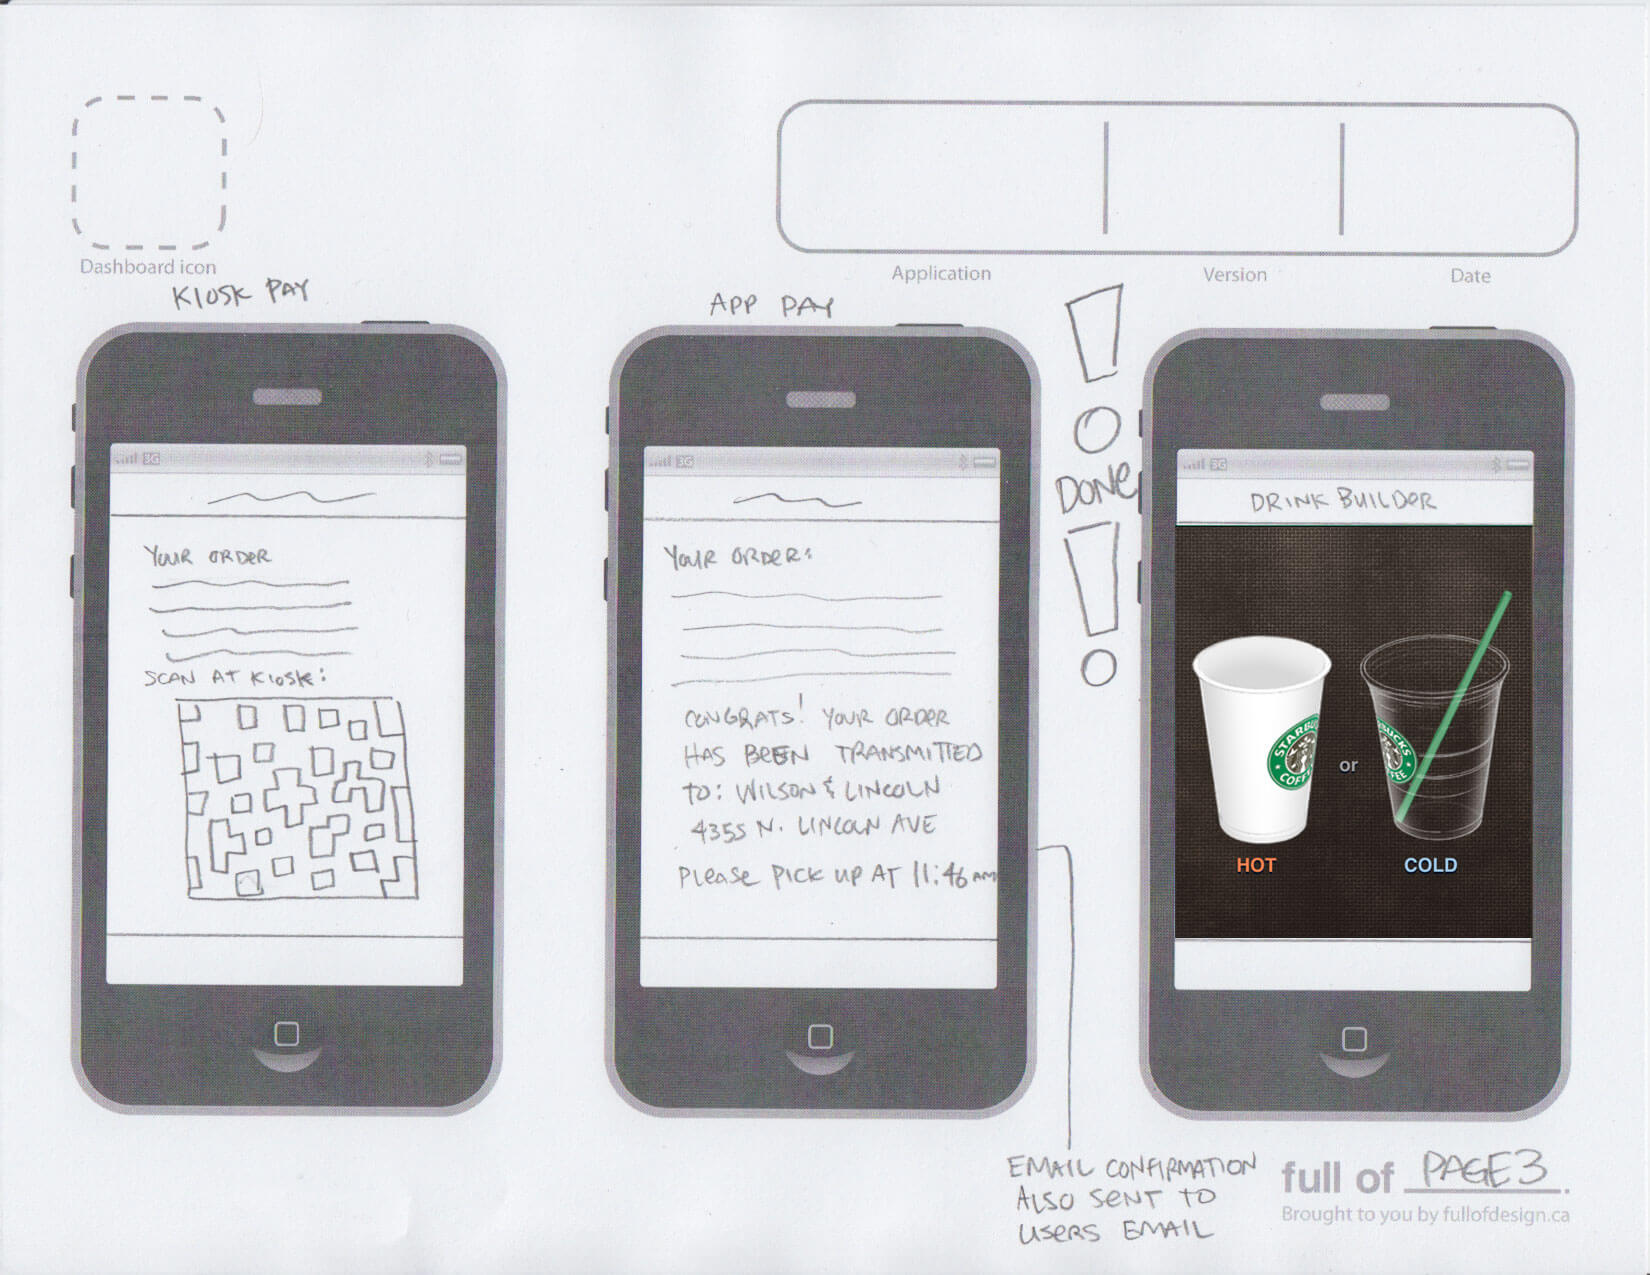 Dashboard icon
Application
Version
Date
KIOSK PAY
3G
YOUR ORDER
SCAN AT KIOSK:
APP PAY
3G
YOUR ORDER:
CONGRATS! YOUR ORDER
HAS BEEN TRANSMITTED
TO: WILSON & LINCOLN
4355 N. LINCOLN AVE
PLEASE PICK UP AT 11:46 AM
! DONE !
3G
DRINK BUILDER
STARBUCKS
COFFEE
or
BUCKS
FFEE
HOT
COLD
EMAIL CONFIRMATION
ALSO SENT TO
USERS EMAIL
full of PAGE 3.
Brought to you by fullofdesign.ca